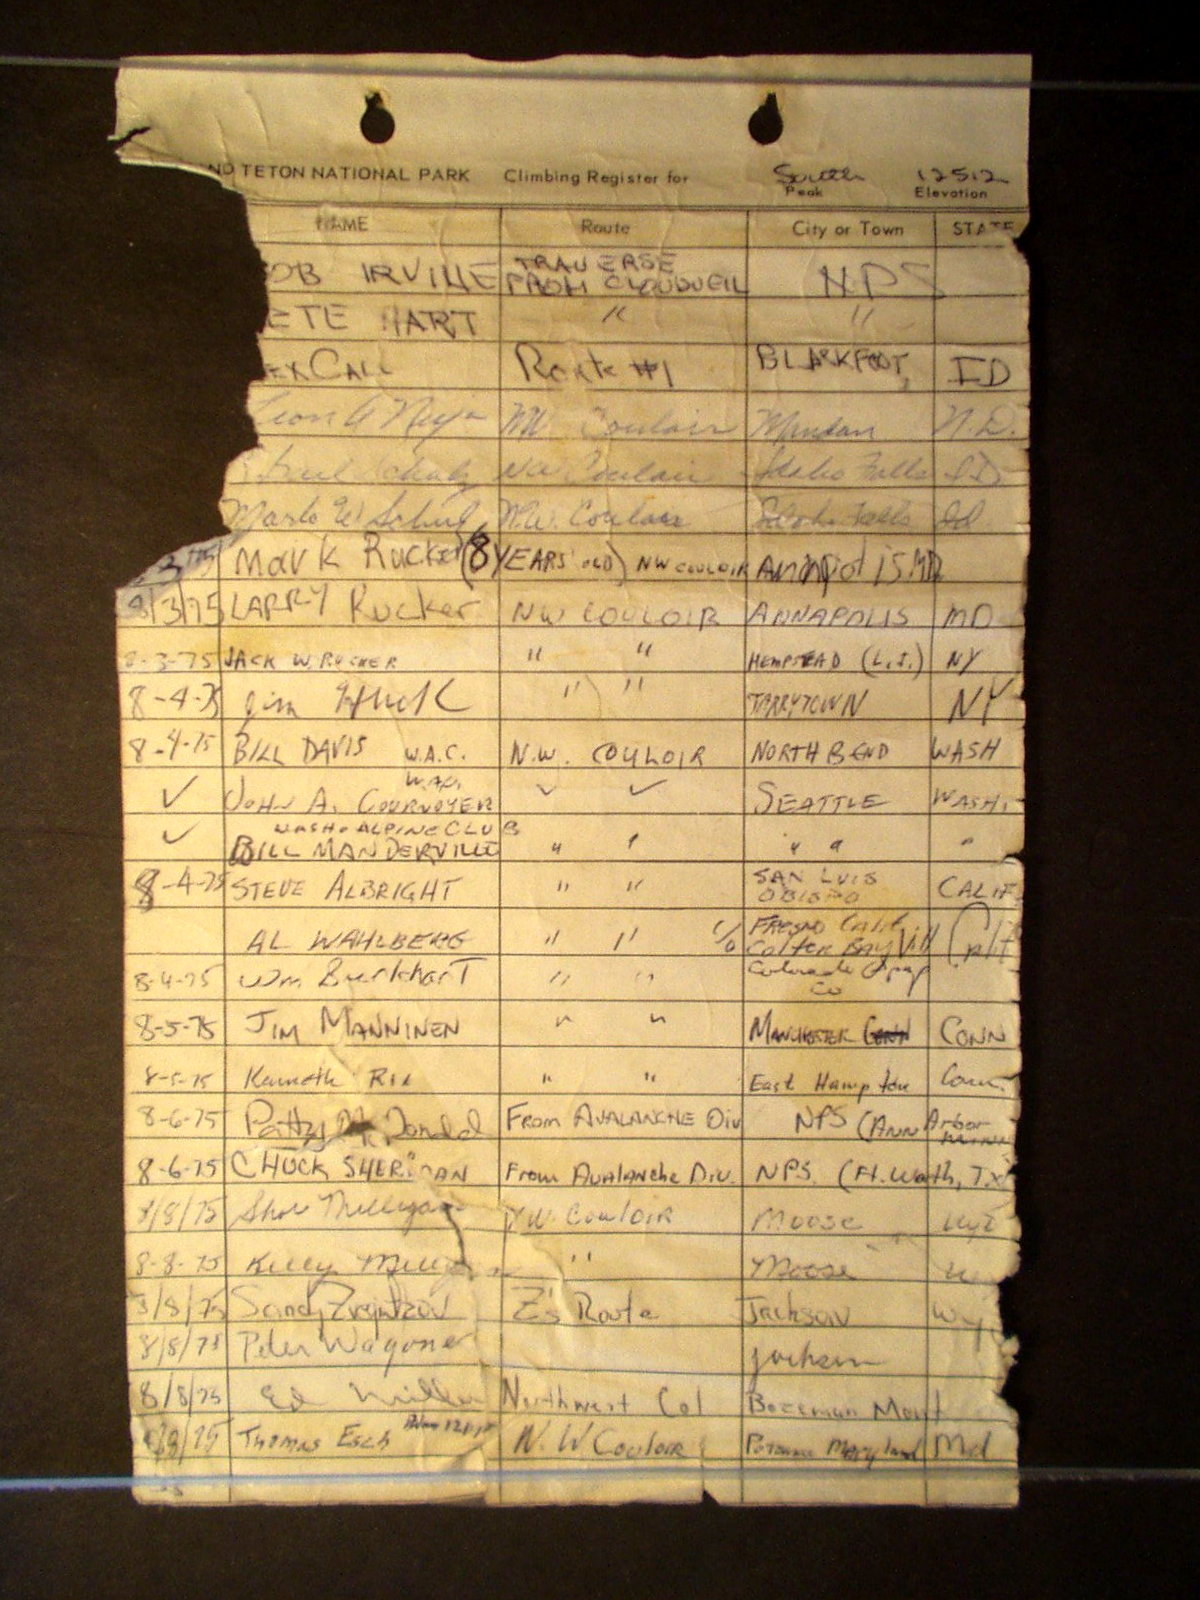 ND TETON NATIONAL PARK Climbing Register for South 12512
Peak Elevation
NAME Route City or Town STATE
OB IRVILLE TRAVERSE FROM CLOUDVEIL NPS
ETE HART " "
EX CALL Route #1 BLACKFOOT, ID
NW Couloir Mandan N.D.
NW Couloir Idaho Falls ID
N.W. Couloir Idaho Falls Id
3/75 Mark Rucker (8 YEARS OLD) NW COULOIR MD
8/3/75 LARRY Rucker NW COULOIR ANNAPOLIS MD
8-3-75 JACK W. RUCKER " " HEMPSTEAD (L.I.) NY
8-4-75 Jim Huck " " TARRYTOWN NY
8-4-75 BILL DAVIS W.A.C. N.W. COULOIR NORTH BEND WASH
✓ JOHN A. COURNOYER W.A.C. ✓ ✓ SEATTLE WASH.
✓ WASH. ALPINE CLUB
BILL MANDERVILLE " " " " "
8-4-75 STEVE ALBRIGHT " " SAN LUIS OBISPO CALIF
AL WAHLBERG " " % FRESNO Calif Colter Bay Vill Calif
8-4-75 Wm Burkhart " " Colorado Spgs Co
8-5-75 JIM MANNINEN " " MANCHESTER CONN
8-5-75 Kenneth " " East Hampton Conn.
8-6-75 Patty McDonald From AVALANCHE Div NPS (ANN Arbor
8-6-75 CHUCK SHERIDAN From Avalanche Div. NPS. (Ft. Worth, Tx
8/8/75 Milligan NW Couloir Moose Wyo
8-8-75 Kelly " Moose
8/8/75 Sandy Z's Route Jackson Wyo
8/8/75 Peter Wagoner Jackson
8/8/75 Ed Miller Northwest Col Bozeman Mont
8/9/75 Thomas Esch N.W Couloir Potomac Maryland Md